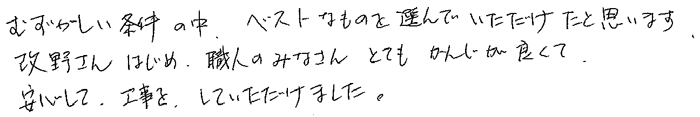 むずかしい条件の中、ベストなものを選んでいただけたと思います、
改野さんはじめ、職人のみなさんとてもかんじが良くて、
安心して、工事を、していただけました。